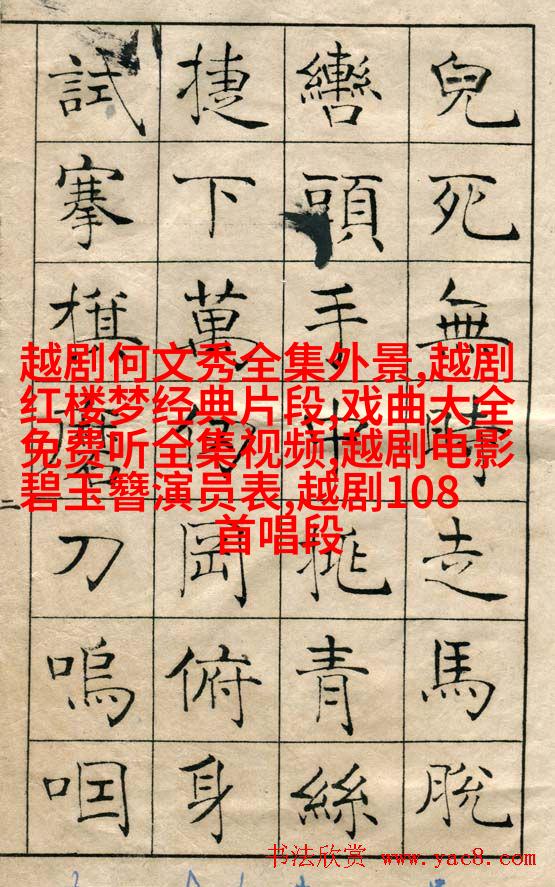 兒死無時走馬脫
轡頭手中挑青絲
捷下萬仞岡俯身
試搴旗磨刀嗚咽
越剧何文秀全集外景,越剧
红楼梦经典片段,戏曲大全
免费听全集视频,越剧电影
碧玉簪演员表,越剧108
首唱段
书法欣赏 www.yac8.com